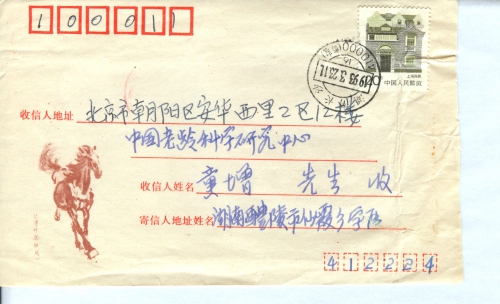 100011
中国人民邮政
上海民居
1993.3.23.11
收信人地址 北京市朝阳区安华西里2区12楼
中国老龄科学研究中心
收信人姓名 董增 先生 收
寄信人地址姓名 湖南醴陵市仙霞乡学区
412224